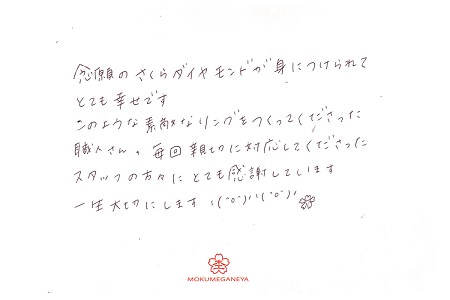 念願のさくらダイヤモンドが身につけられて
とても幸せです
このような素敵なリングをつくってくださった
職人さん、毎回親切に対応してくださった
スタッフの方々にとても感謝しています
一生大切にします ヽ(´o`)ヽ(´o`)ﾉ
MOKUMEGANEYA